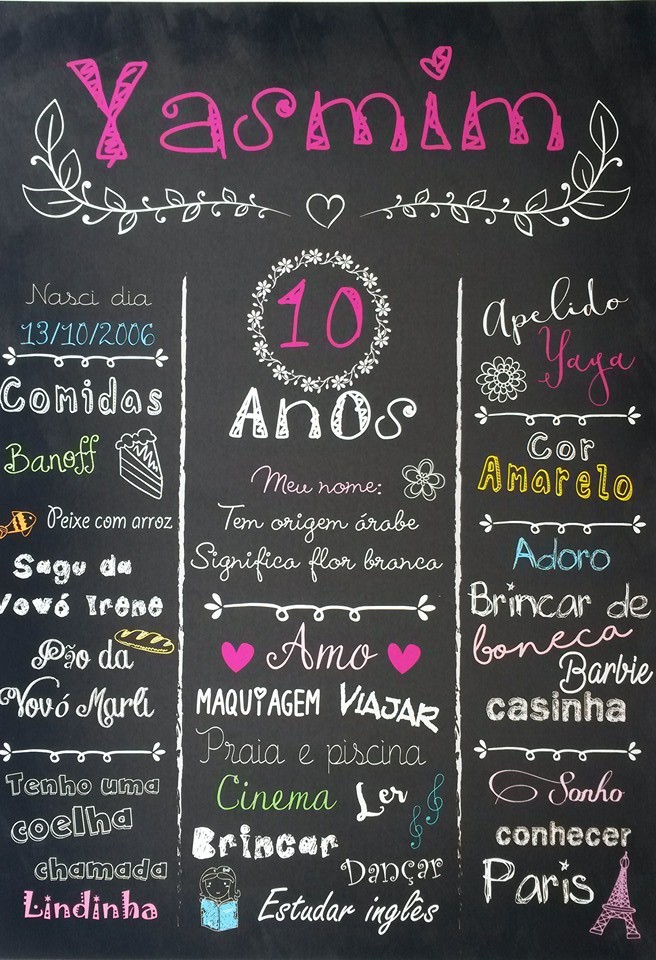 Yasmim
Nasci dia
13/10/2006
Comidas
Banoff
Peixe com arroz
Sagu da
Vovó Irene
Pão da
Vovó Marli
Tenho uma
coelha
chamada
Lindinha
10
Anos
Meu nome:
Tem origem árabe
Significa flor branca
Amo
MAQUIAGEM VIAJAR
Praia e piscina
Cinema Ler
Brincar
Dançar
Estudar inglês
Apelido
Yaya
Cor
Amarelo
Adoro
Brincar de
boneca
Barbie
casinha
Sonho
conhecer
Paris